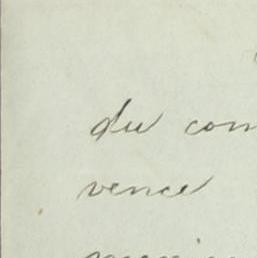 du com
vence